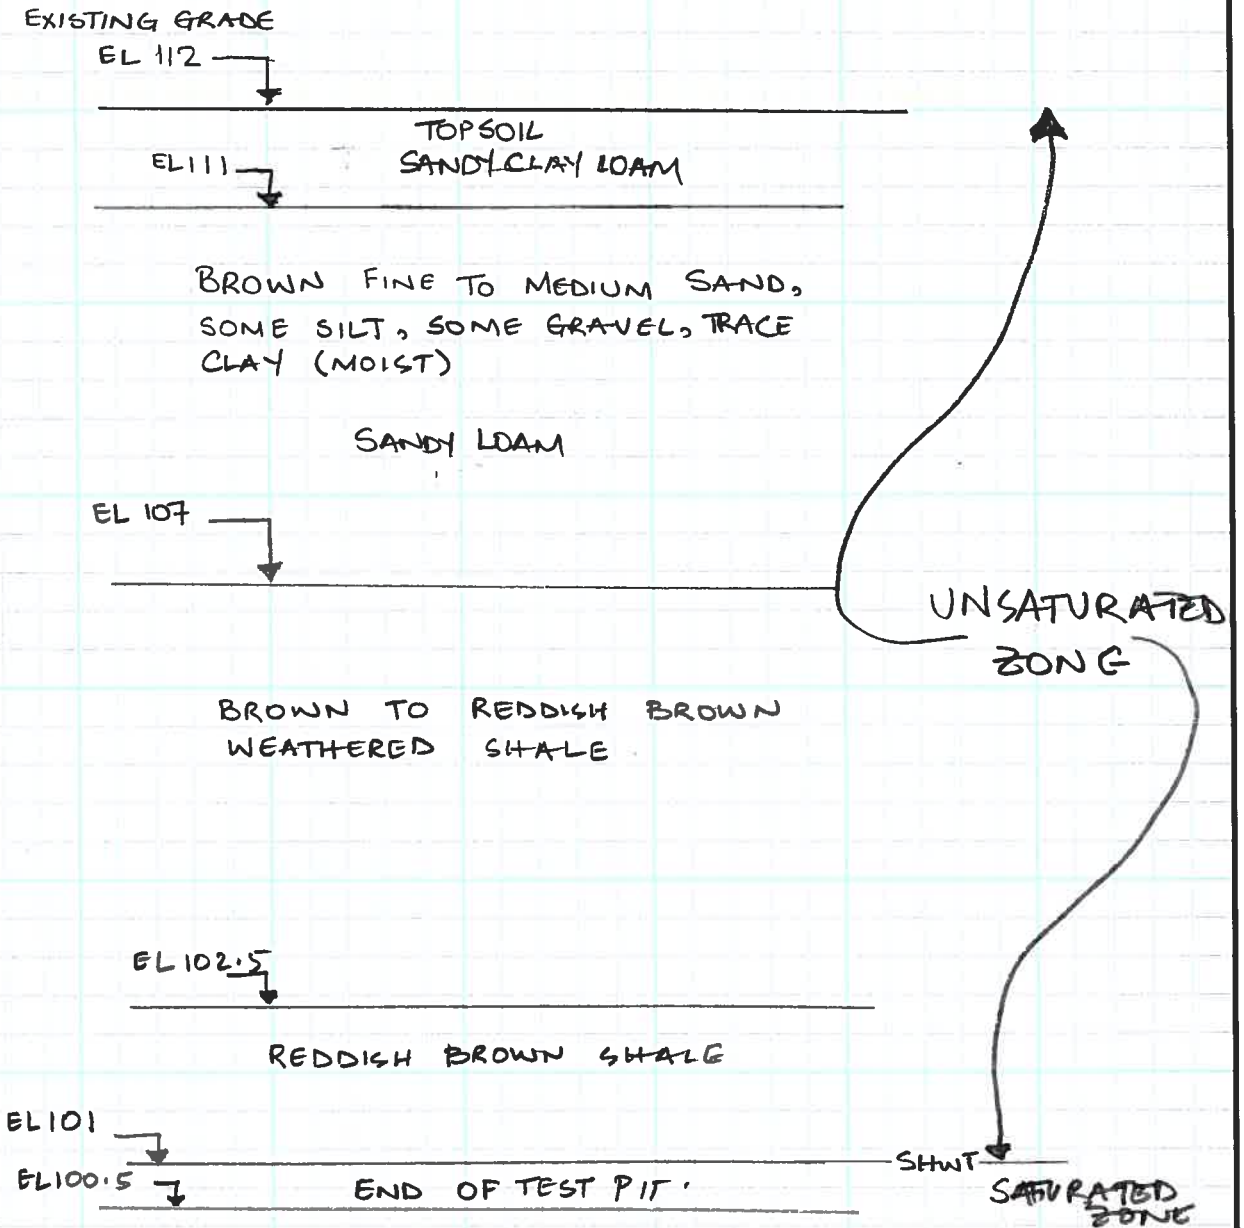 EXISTING GRADE
EL 112
TOPSOIL
EL111
SANDY CLAY LOAM
BROWN FINE TO MEDIUM SAND,
SOME SILT, SOME GRAVEL, TRACE
CLAY (MOIST)
SANDY LOAM
EL 107
UNSATURATED
ZONE
BROWN TO REDDISH BROWN
WEATHERED SHALE
EL 102.5
REDDISH BROWN SHALE
EL101
SHWT
EL100.5
END OF TEST PIT.
SATURATED
ZONE